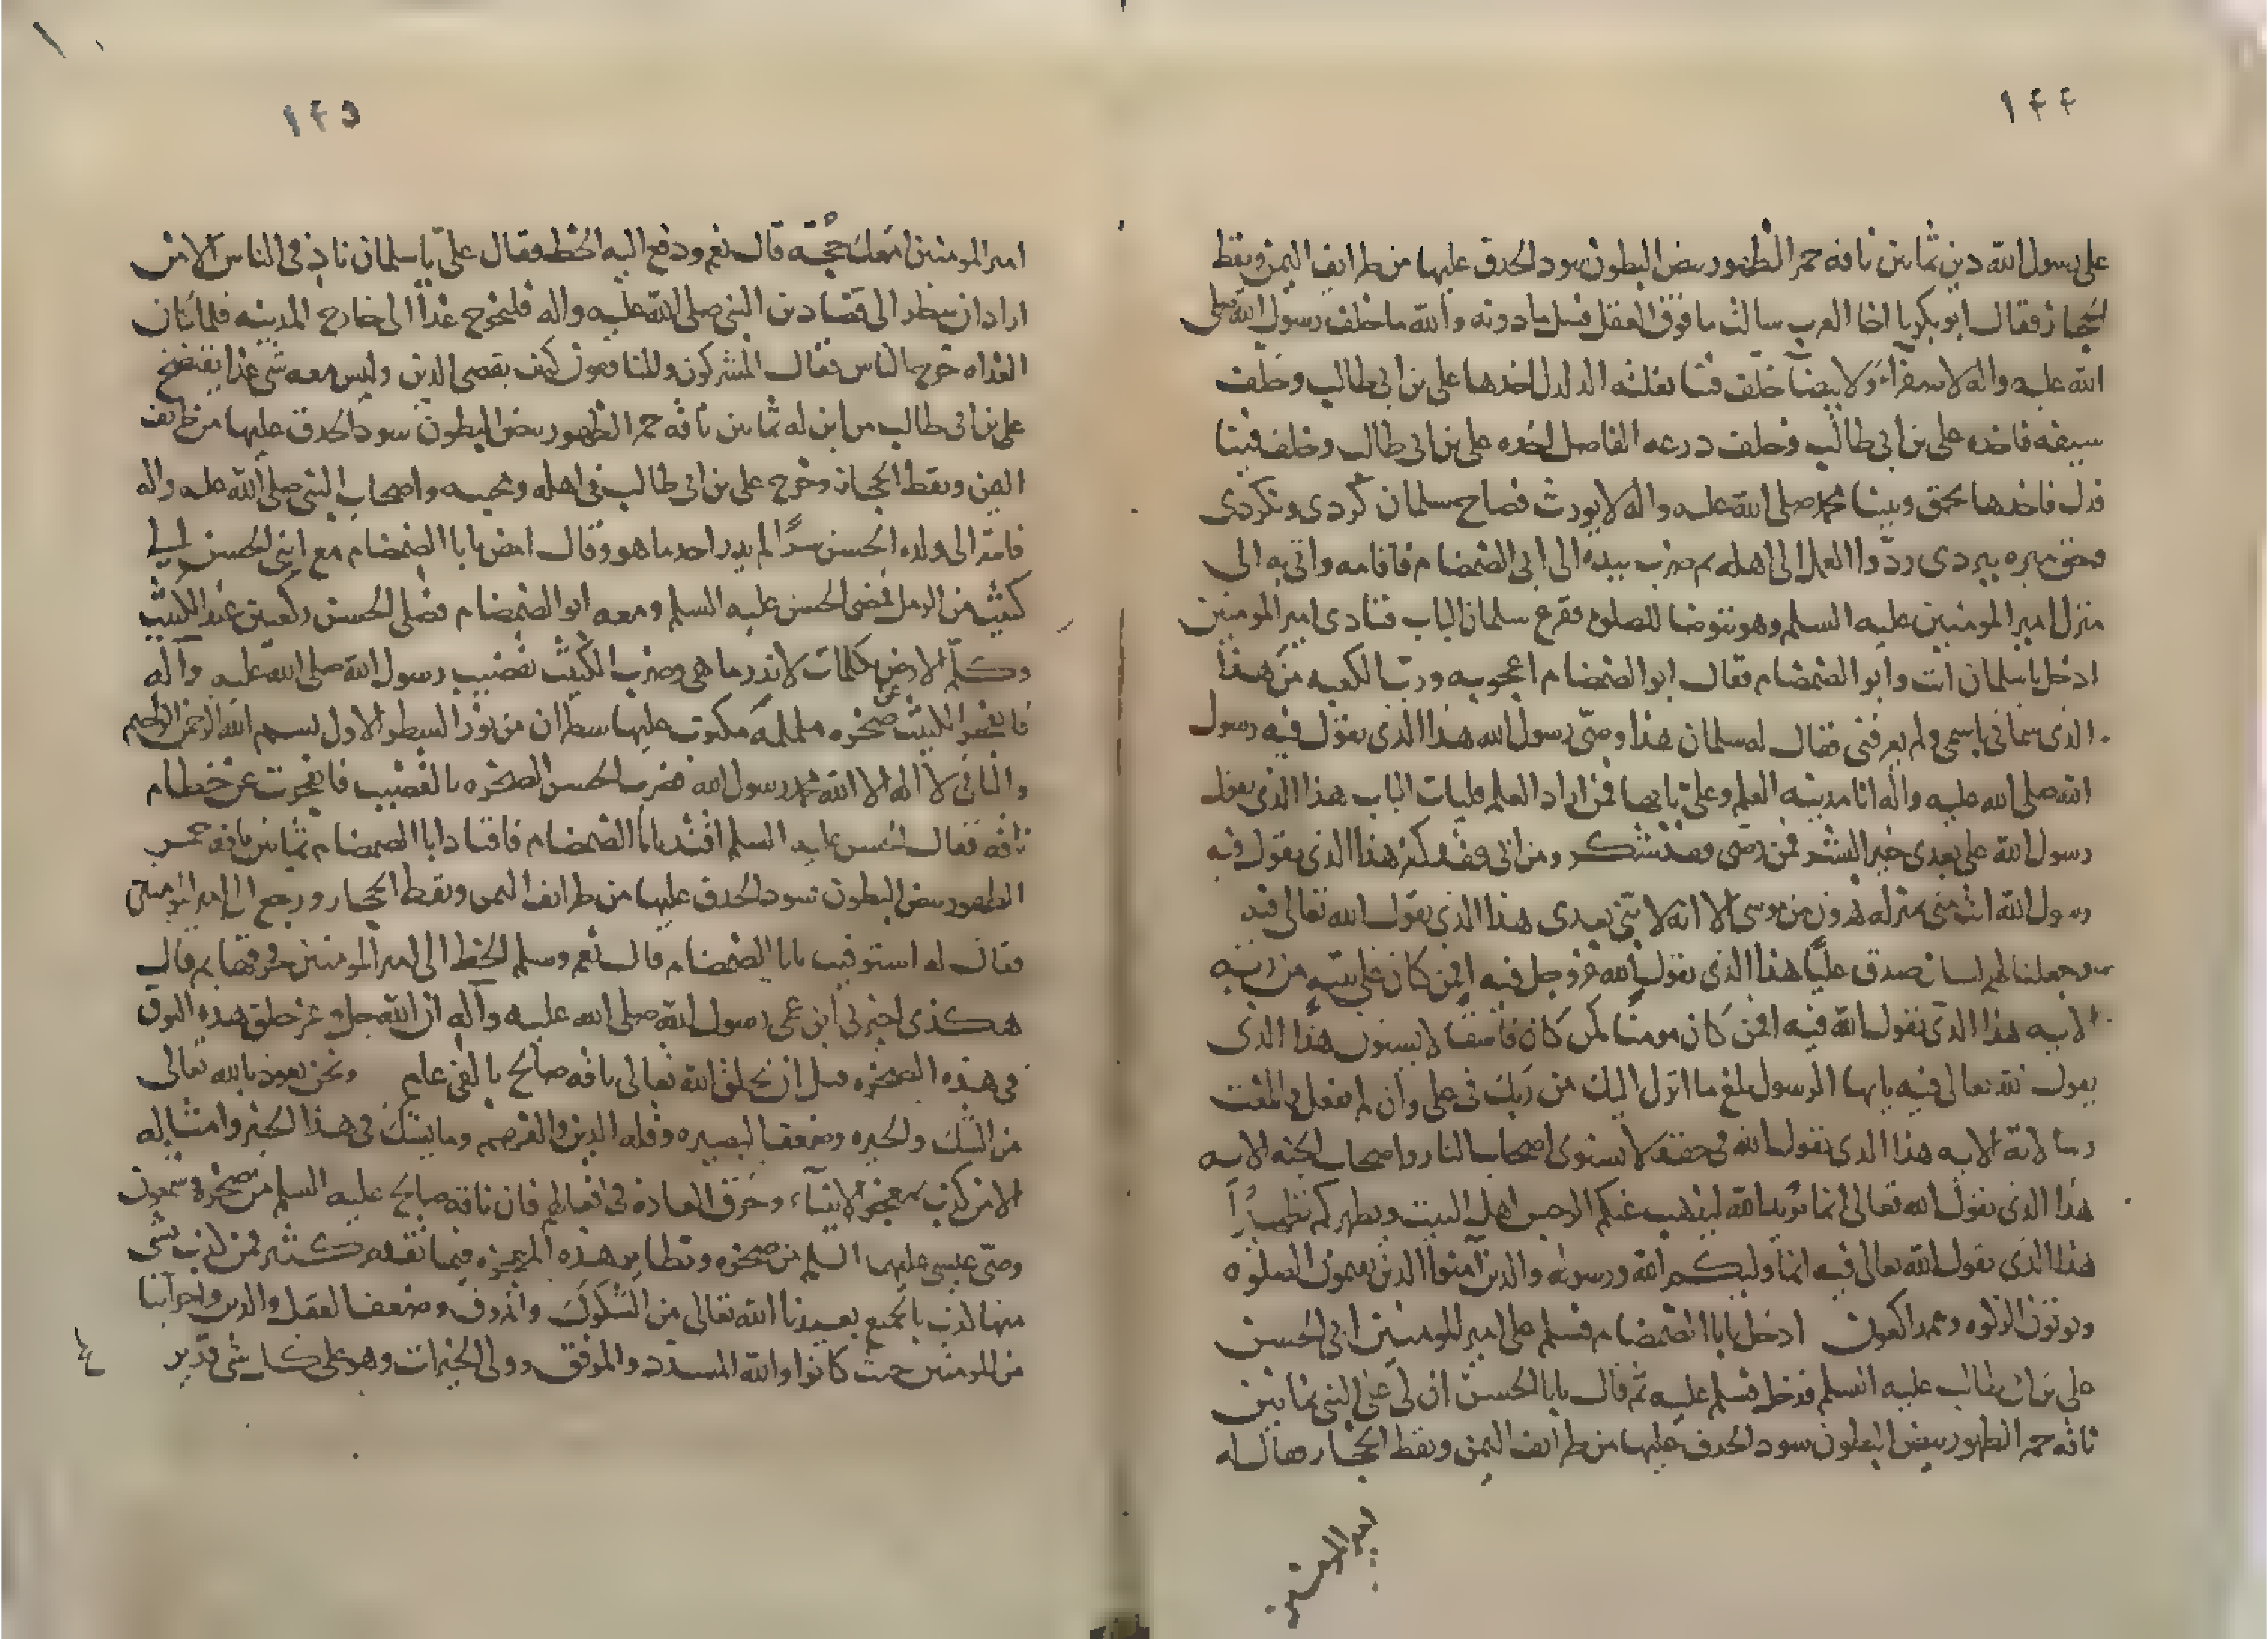 ١٤٤
على رسول الله دين ثمانين ناقه حمر الظهور بيض البطون سود الحدق عليها من طرايف اليمن ونقط
الحجاز فقال ابو بكر يا اخا العرب سالت ما فوق العقل فسل ما دونه والله ما خلف رسول الله صلى
الله عليه واله لا صفرآء ولا بيضآ خلف فينا بغلته الدلدل اخذها علي بن ابي طالب وخلف
سيفه فاخذه على بن ابي طالب وخلف درعه الفاصل اخذه على بن ابي طالب وخلف فينا
فدك فاخذها بحق ونبينا محمد صلى الله عليه واله لا يورث فصاح سلمان كردى ونكردى
وحق ميره ببردى ردّوا العمل الى اهله ثم ضرب بيده الى ابى الضمضام فاقامه واتى به الى
منزل امير المومنين عليه السلم وهو يتوضا للصلوه فقرع سلمان الباب فنادى امير المومنين
ادخل يا سلمان انت وابو الضمضام فقال ابو الضمضام اعجوبه ورب الكعبه من هذا
الذى سمانى باسمى ولم يعرفنى فقال له سلمان هذا وصّى رسول الله هذا الذى يقول فيه رسول
الله صلى الله عليه واله انا مدينه العلم وعلى بابها فمن اراد العلم فليات الباب هذا الذى يقول
رسول الله على بعدى خير البشر فمن رضى فقد شكر ومن ابى فقد كفر هذا الذى يقول فيه
رسول الله انت منى بمنزله هرون من موسى الا انه لا نبى بعدى هذا الذى يقول الله تعالى فيه
وجعلنا لهم لسان صدق عليًّا هذا الذى يقول الله عز وجل فيه افمن كان على بينه من ربه
الايه هذا الذى يقول الله فيه افمن كان مومنا كمن كان فاسقا لا يستون هذا الذى
يقول الله تعالى فيه يايها الرسول بلغ ما انزل اليك من ربك فى على وان لم تفعل فما بلغت
رسالاته الايه هذا الذى يقول الله فى حقه لا يستوى اصحاب النار واصحاب الجنه الايه
هذا الذى يقول الله تعالى انما يريد الله ليذهب عنكم الرجس اهل البيت ويطهركم تطهيرًا
هذا الذى يقول الله تعالى فيه انما وليكم الله ورسوله والذين آمنوا الذين يقيمون الصلوه
ويوتون الزكوه وهم راكعون ادخل يا با الضمضام فسلم على امير المومنين ابى الحسن
على بن ابى طالب عليه السلم فدخل فسلم عليه ثم قال يا با الحسن ان لى على النبى ثمانين
ناقه حمر الظهور بيض البطون سود الحدق عليها من طرايف اليمن ونقط الحجاز فقال له
امير المومنين
١٤٥
امير المومنين امعك حجّته قال نعم ودفع اليه الخط فقال على يا سلمان ناد فى الناس الا من
اراد ان ينظر الى قضا دين النبى صلى الله عليه واله فليخرج غدًا الى خارج المدينه فلما كان
الغداه خرج الناس فقال المشركون والمنافقون كيف يقضى الدين وليس معه شى غدًا يفتضح
على بن ابى طالب من اين له ثمانين ناقه حمر الظهور بيض البطون سود الحدق عليها من طرايف
اليمن ونقط الحجاز وخرج على بن ابى طالب فى اهله ومحبيه واصحاب النبى صلى الله عليه واله
فاسرّ الى ولده الحسن سرًّا لم يدر احد ما هو وقال امض يا با الضمضام مع ابنى الحسن الى
كثيب من الرمل فمضى الحسن عليه السلم ومعه ابو الضمضام فصلى الحسن ركعتين عند الكثيب
وكلّم الارض بكلمات لا ندر ما هى وضرب الكثيب بقضيب رسول الله صلى الله عليه وآله
فانفجر الكثيب عن صخره ململمه مكتوب عليها سطران من نور السطر الاول بسم الله الرحمن الرحيم
والثانى لا اله الا الله محمد رسول الله فضرب الحسن الصخره بالقضيب فانفجرت عن خطام
ناقه فقال الحسن عليه السلم اقتد يا با الضمضام فاقتاد ابا الضمضام ثمانين ناقه حمر
الظهور بيض البطون سود الحدق عليها من طرايف اليمن ونقط الحجاز ورجع الى امير المومنين
فقال له استوفيت يا با الضمضام قال نعم وسلم الخط الى امير المومنين فخرقها ثم قال
هكذى اخبرنى ابن عمى رسول الله صلى الله عليه وآله ان الله جل وعز خلق هذه النوق
فى هذه الصخره قبل ان يخلق الله تعالى ناقه صالح بالفى عام ونحن نعوذ بالله تعالى
من الشك والحيره وضعف البصيره وقله الدين والفهم وما يشك فى هذا الخبر وامثاله
الا من كذب بمعجز الانبيآء وخرق العاده فى افعالهم فان ناقه صالح عليه السلم من صخره وشمعون
وصّى عيسى عليهما السلم من صخره ونظاير هذه المعجزه فيما تقدم كثير فمن كذب بشى
منها كذب بالجميع يعيذنا الله تعالى من الشكوك وضعف العقل والدين واخواننا
من المومنين حيث كانوا والله المسدد والموفق وولى الخيرات وهو على كل شى قدير